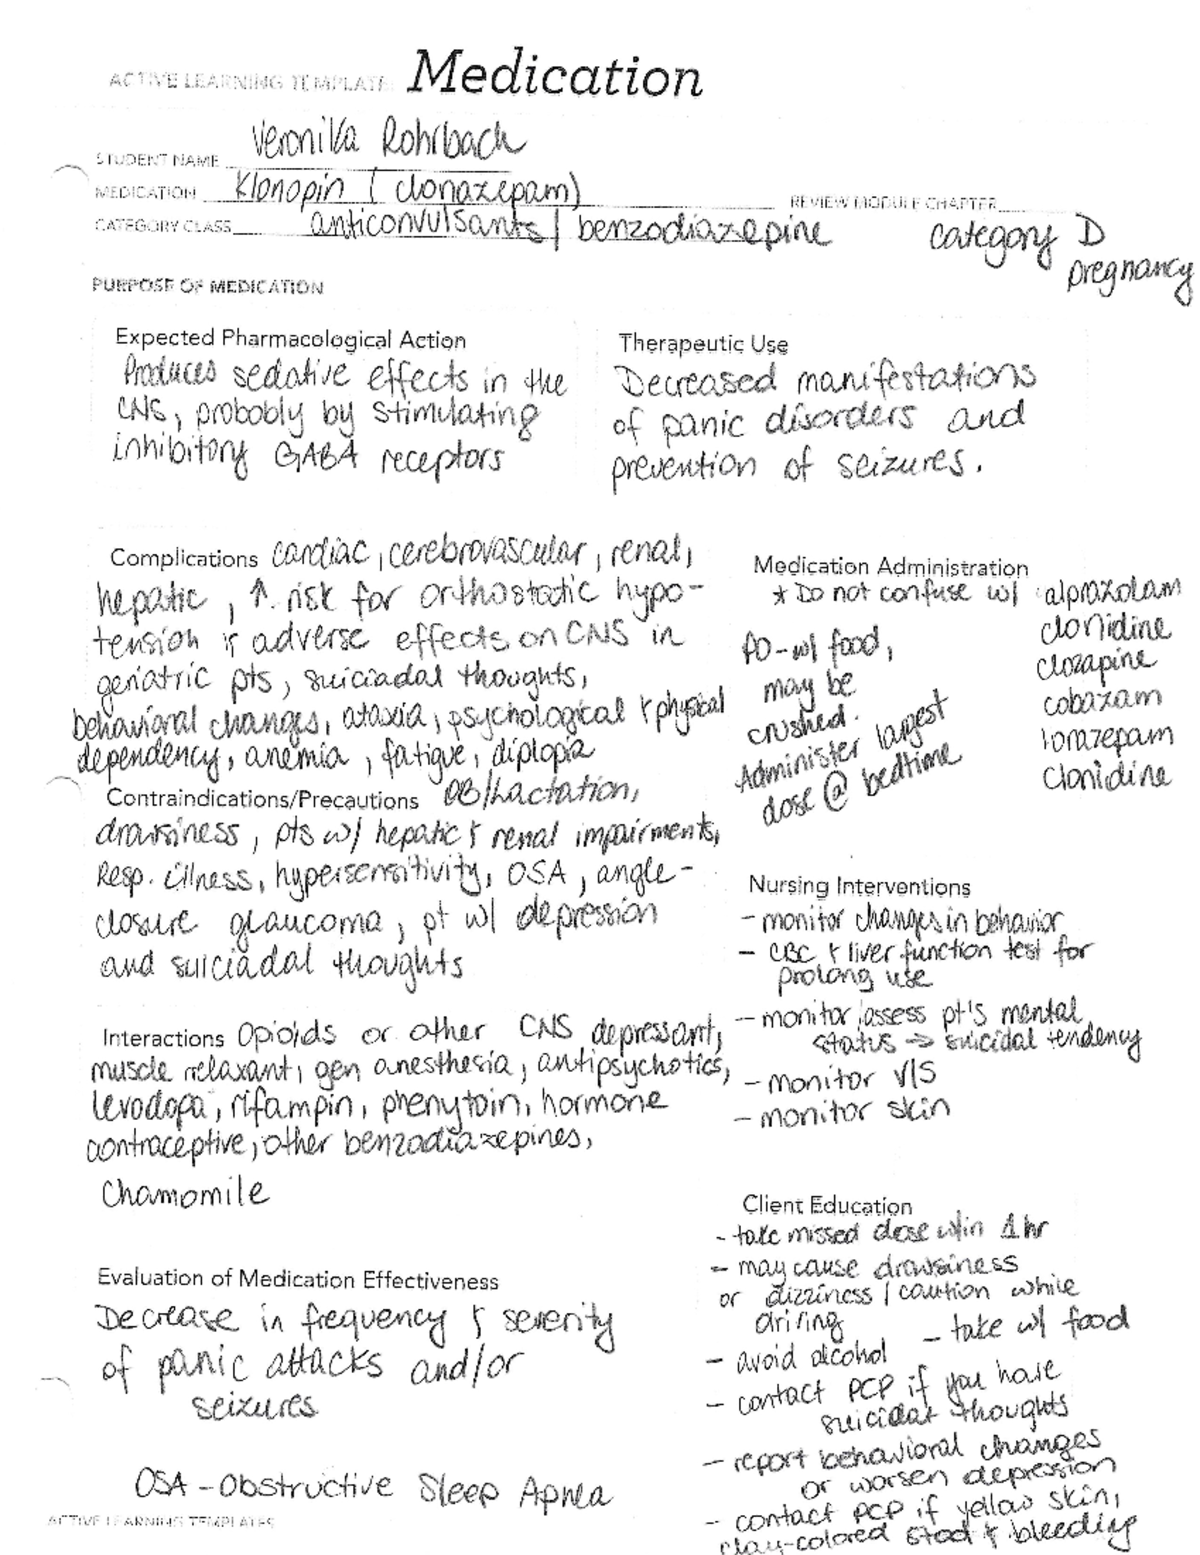 ACTIVE LEARNING TEMPLATE: Medication
STUDENT NAME Veronika Rohrbach
MEDICATION Klonopin (clonazepam)
REVIEW MODULE CHAPTER
CATEGORY CLASS anticonvulsants / benzodiazepine
category D
pregnancy
PURPOSE OF MEDICATION
Expected Pharmacological Action
Produces sedative effects in the
CNS, probobly by stimulating
inhibitory GABA receptors
Therapeutic Use
Decreased manifestations
of panic disorders and
prevention of seizures.
Complications cardiac, cerebrovascular, renal,
hepatic, ↑ risk for orthostatic hypo-
tension & adverse effects on CNS in
geriatric pts, suiciadal thoughts,
behavioral changes, ataxia, psychological & physical
dependency, anemia, fatigue, diplopia
Contraindications/Precautions OB/Lactation,
drawsiness, pts w/ hepatic & renal impairments,
Resp. illness, hypersensitivity, OSA, angle-
closure glaucoma, pt w/ depression
and suiciadal thoughts
Interactions Opioids or other CNS depressant,
muscle relaxant, gen anesthesia, antipsychotics,
levodopa, rifampin, phenytoin, hormone
contraceptive, other benzodiazepines,
Chamomile
Evaluation of Medication Effectiveness
Decrease in frequency & severity
of panic attacks and/or
seizures
OSA - Obstructive Sleep Apnea
ACTIVE LEARNING TEMPLATES
Medication Administration
* Do not confuse w/ alprazolam
clonidine
clozapine
cobazam
lorazepam
clonidine
PO - w/ food,
may be
crushed.
Administer largest
dose @ bedtime
Nursing Interventions
- monitor changes in behavior
- CBC & liver function test for
prolong use
- monitor/assess pt's mental
status → suicidal tendency
- monitor V/S
- monitor skin
Client Education
- take missed dose w/in 1 hr
- may cause drawsiness
or dizziness / caution while
driving
- take w/ food
- avoid alcohol
- contact PCP if you have
suicidal thoughts
- report behavioral changes
or worsen depression
- contact PCP if yellow skin,
clay-colored stool & bleeding